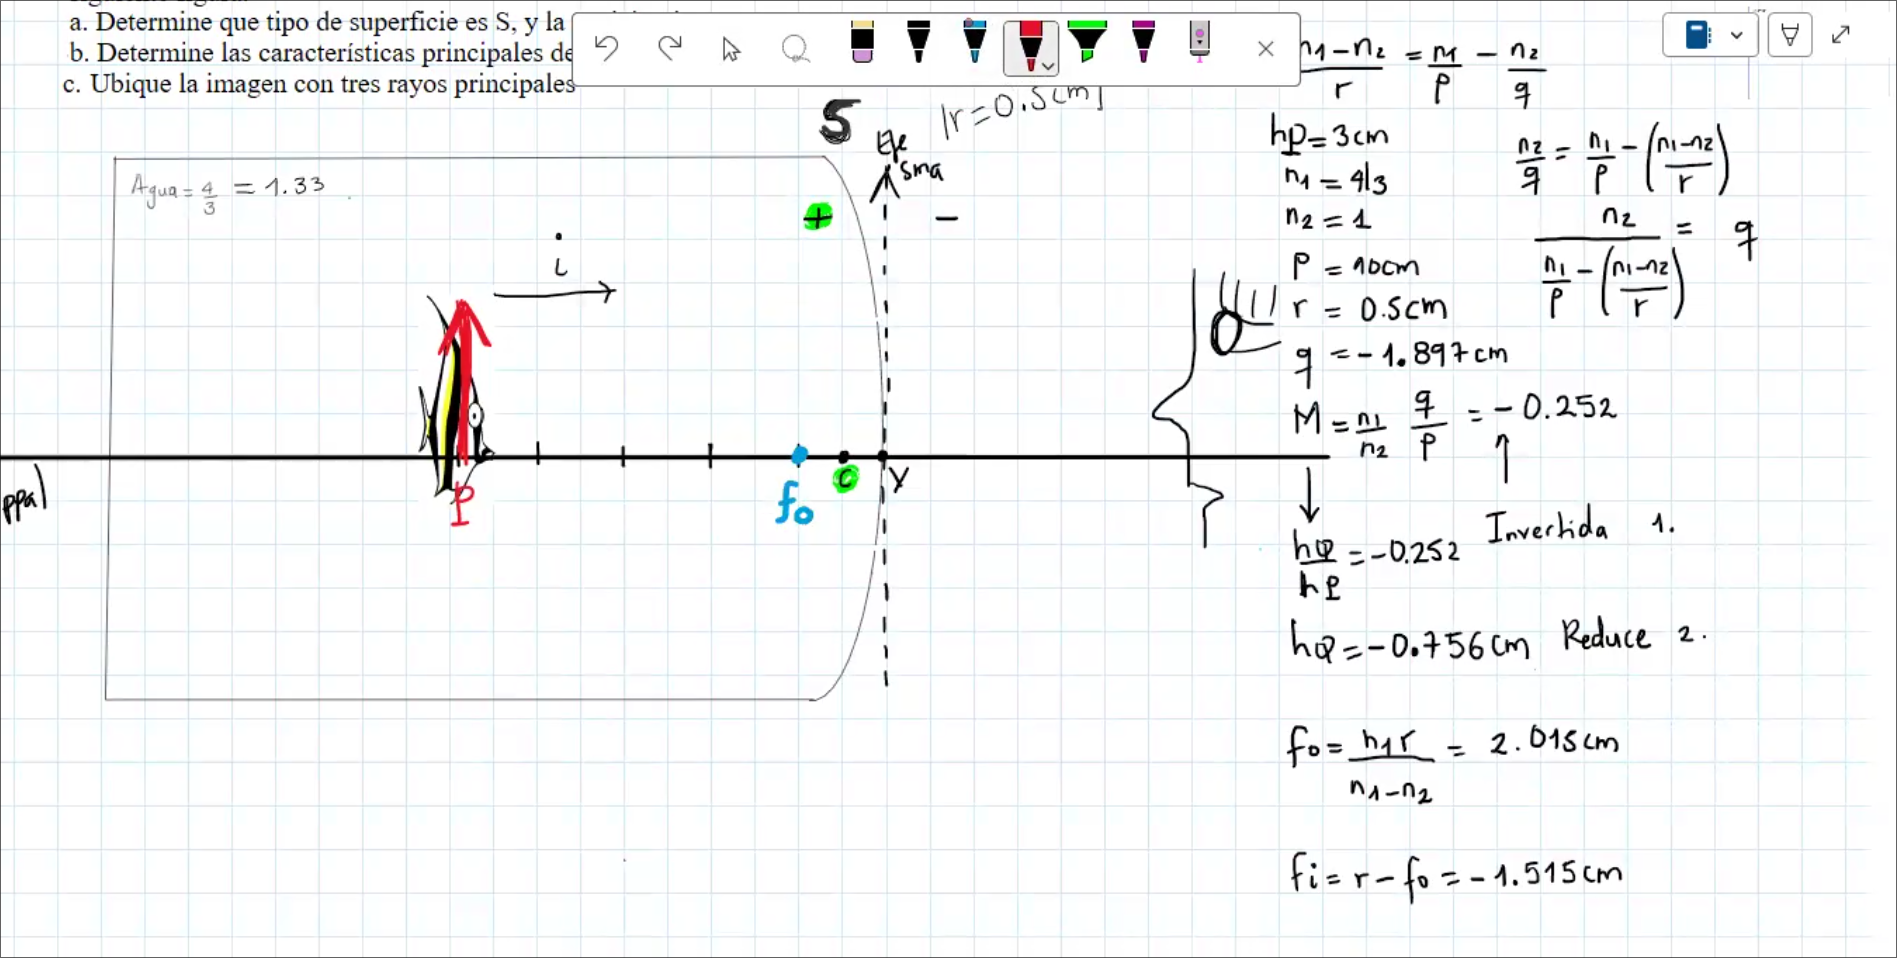 a. Determine que tipo de superficie es S, y la
b. Determine las características principales de
c. Ubique la imagen con tres rayos principales
S
|r=0.5cm|
Eje
sma
Agua = 4/3 = 1.33
+
−
i
P
fo
C
V
ppal
n1−n2/r = n1/P − n2/q
hp = 3cm
n1 = 4/3
n2 = 1
P = 10cm
r = 0.5cm
q = −1.897cm
M = n1/n2 q/P = −0.252
n2/q = n1/P − (n1−n2/r)
n2/n1/P − (n1−n2/r) = q
hQ/hP = −0.252 Invertida 1.
hQ = −0.756cm Reduce 2.
fo = n1r/n1−n2 = 2.015cm
fi = r − fo = −1.515cm